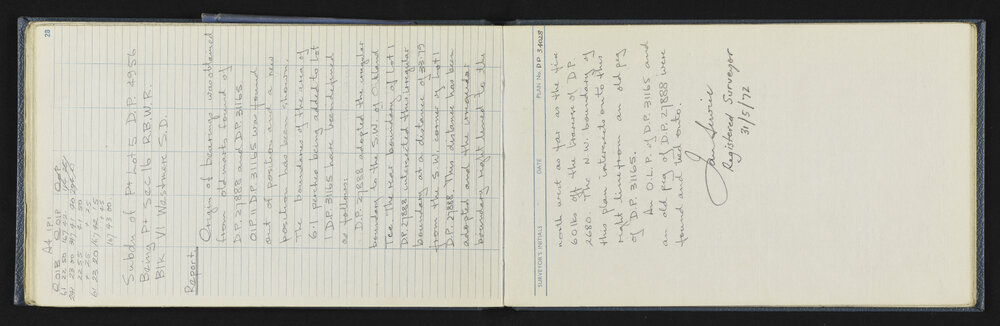 28
Subdn of Pt Lot 5 D.P. 4956
Being Pt Sec 16 R.B.W.R.
Blk VI Westmere S.D.
Report
Origin of bearings was obtained
from old marks found of
D.P. 27888 and D.P. 31165
OIP II D.P. 31165 was found
out of position and a new
position has been shown.
The boundaries of the area of
6.1 perches being added to Lot
1 D.P. 31165 have been defined
as follows:
D.P. 27888 adopted the irregular
boundary to the S.W. of
Tce. The rear boundary of Lot 1
D.P. 27888 intersected the irregular
boundary at a distance of 33.79
from the S.W. corner of Lot 1
D.P. 27888. This distance has been
adopted and the irregular
boundary right lined to the
SURVEYOR'S INITIALS
DATE
PLAN No. D.P. 34028
north west as far as the fix
60 lks off the traverse of D.P.
2680. The N.W. boundary of
this plan intersects onto this
right line from an old peg
of D.P. 31165.
An O.L.P. of D.P. 31165 and
an old peg of D.P. 27888 were
found and tied onto.
Registered Surveyor
31/5/72